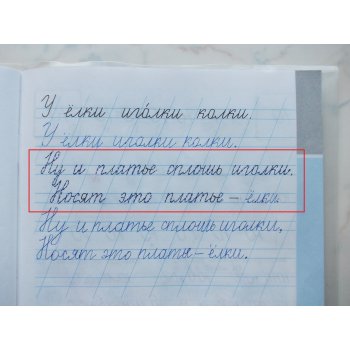 У ёлки иго́лки колки.
У ёлки иголки колки.
Ну и платье сплошь иголки.
Носят это платье – ёлки.
Ну и платье сплошь иголки,
Носят это платье – ёлки.